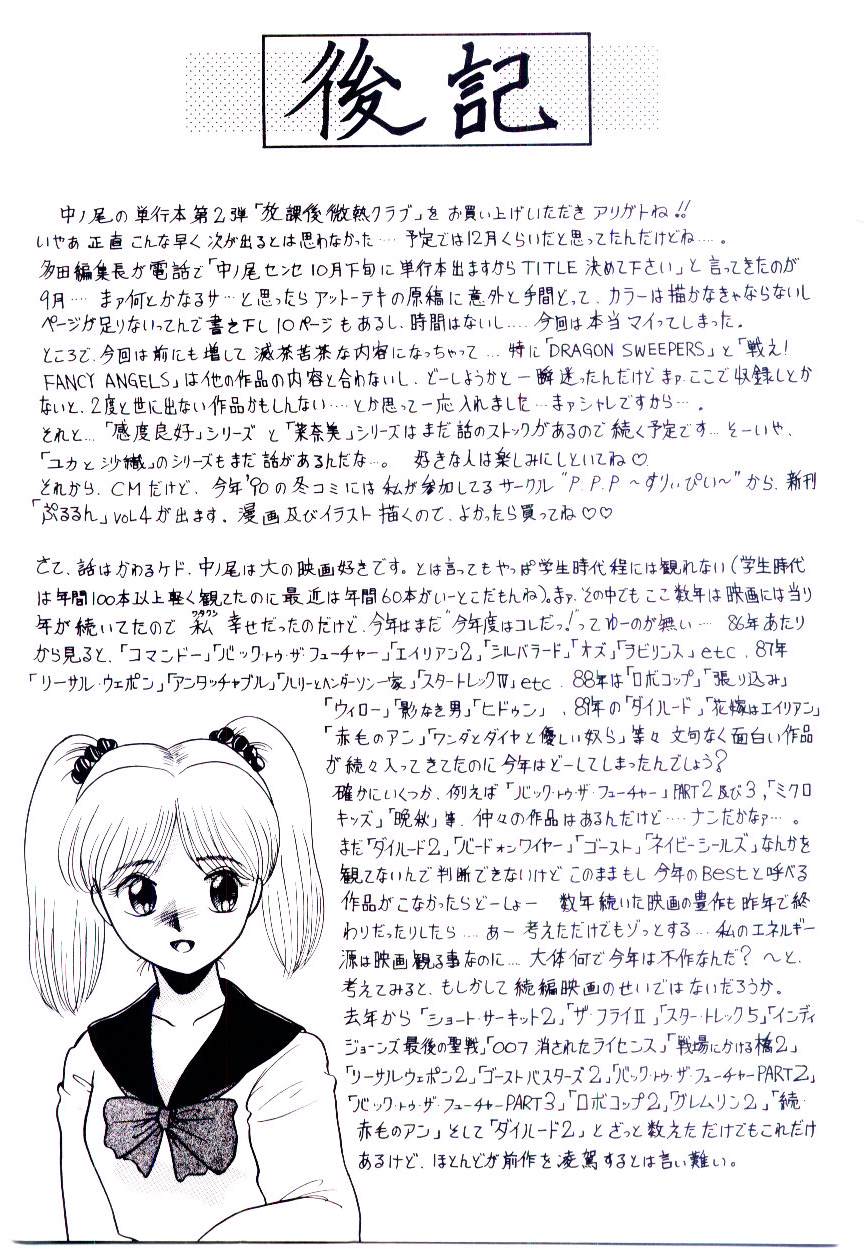 後記
中ノ尾の単行本第2弾「放課後微熱クラブ」をお買い上げいただきアリガトね!!
いやあ正直こんな早く次が出るとは思わなかった‥‥予定では12月くらいだと思ってたんだけどね‥‥。
多田編集長が電話で「中ノ尾センセ10月下旬に単行本出ますからTITLE決めて下さい」と言ってきたのが
9月‥‥まァ何とかなるサ‥と思ったらアットーテキの原稿に意外と手間どって、カラーは描かなきゃならないし
ページが足りないってんで書き下し10ページもあるし、時間はないし‥‥今回は本当マイってしまった。
ところで、今回は前にも増して滅茶苦茶な内容になっちゃって…特に「DRAGON SWEEPERS」と「戦え!
FANCY ANGELS」は他の作品の内容と合わないし、どーしようかと一瞬迷ったんだけどまァここで収録しとか
ないと、2度と世に出ない作品かもしんない‥‥とか思って一応入れました…まァシャレですから…。
それと…「感度良好」シリーズと「茉奈美」シリーズはまだ話のストックがあるので続く予定です…そーいや、
「ユカと沙織」のシリーズもまだ話があるんだな…。 好きな人は楽しみにしといてね♡
それから、CMだけど、今年'90の冬コミには私が参加してるサークル"P.P.P〜すりぃぴぃ〜"から、新刊
「ぷるるん」VOL4が出ます。漫画及びイラスト描くので、よかったら買ってね♡♡
さて、話はかわるケド、中ノ尾は大の映画好きです。とは言ってもやっぱ学生時代程には観れない(学生時代
は年間100本以上軽く観てたのに最近は年間60本がいーとこだもんね)。まァ、その中でもここ数年は映画には当り
年が続いてたので私ワタクシ幸せだったのだけど、今年はまだ"今年度はコレだっ!"ってゆーのが無い…86年あたり
から見ると、「コマンドー」「バック・トゥ・ザ・フューチャー」「エイリアン2」「シルバラード」「オズ」「ラビリンス」etc、87年
「リーサル・ウェポン」「アンタッチャブル」「ハリーとヘンダーソン一家」「スタートレックⅣ」etc、88年は「ロボコップ」「張り込み」
「ウィロー」「影なき男」「ヒドゥン」、89年の「ダイ・ハード」「花嫁はエイリアン」
「赤毛のアン」「ワンダとダイヤと優しい奴ら」等々文句なく面白い作品
が続々入ってきてたのに今年はどーしてしまったんでしょう?
確かにいくつか、例えば「バック・トゥ・ザ・フューチャー」PART2及び3,「ミクロ
キッズ」「晩秋」等、仲々の作品はあるんだけど‥‥ナンだかなァ…。
まだ「ダイ・ハード2」「バード・オン・ワイヤー」「ゴースト」「ネイビーシールズ」なんかを
観てないんで判断できないけどこのままもし今年のBestと呼べる
作品がこなかったらどーしょー 数年続いた映画の豊作も昨年で終
わりだったりしたら‥‥あー考えただけでもゾっとする‥‥私のエネルギー
源は映画観る事なのに‥‥大体何で今年は不作なんだ?〜と、
考えてみると、もしかして続編映画のせいではないだろうか。
去年から「ショート・サーキット2」「ザ・フライⅡ」「スター・トレック5」「インディ
ジョーンズ最後の聖戦」「007消されたライセンス」「戦場にかける橋2」
「リーサル・ウェポン2」「ゴーストバスターズ2」「バック・トゥ・ザ・フューチャーPART2」
「バック・トゥ・ザ・フューチャーPART3」「ロボコップ2」「グレムリン2」「続・
赤毛のアン」そして「ダイ・ハード2」とざっと数えただけでもこれだけ
あるけど、ほとんどが前作を凌駕するとは言い難い。